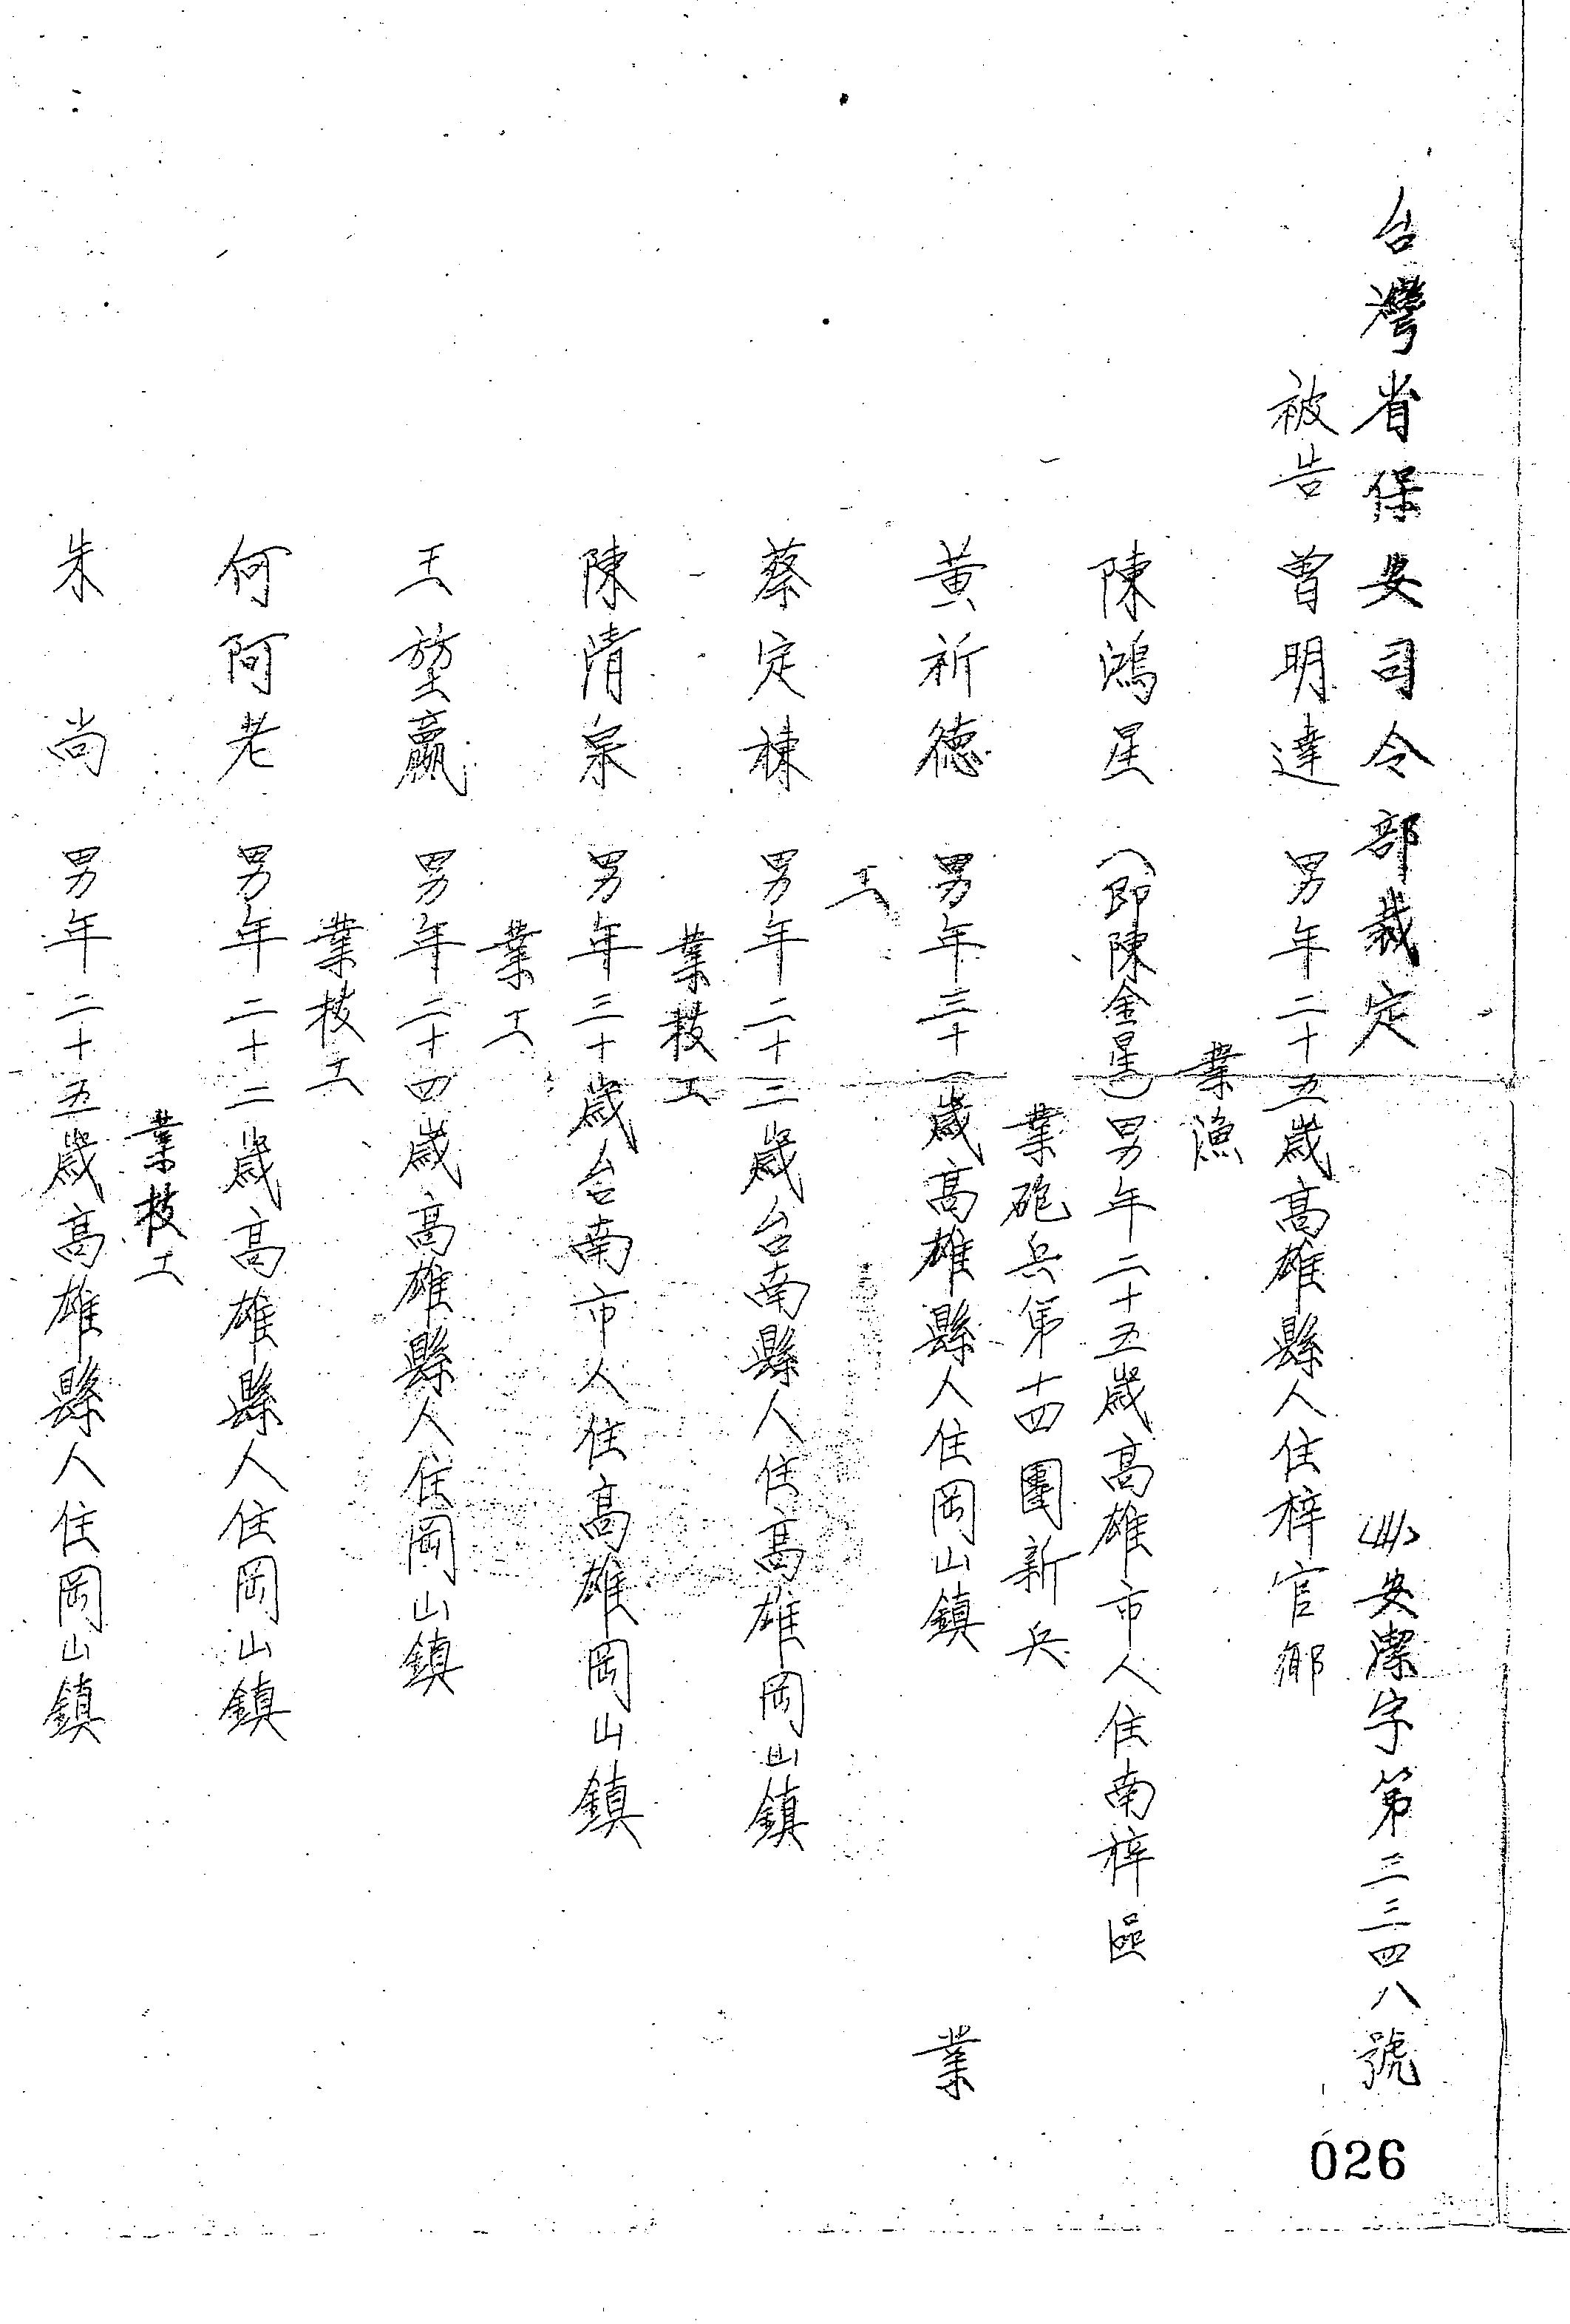 台灣省保安司令部裁定
安潔字第三三四八號
被告 曾明達 男年二十五歲高雄縣人住梓官鄉
業漁
陳鴻星(即陳金星)男年二十五歲高雄市人住南梓區
業砲兵第十四團新兵
黃祈德 男年三十一歲高雄縣人住岡山鎮 業
工
蔡定棟 男年二十二歲台南縣人住高雄岡山鎮
業技工
陳清泉 男年三十歲台南市人住高雄岡山鎮
業工
王堃贏 男年二十四歲高雄縣人住岡山鎮
業技工
何阿老 男年二十二歲高雄縣人住岡山鎮
業技工
朱尚 男年二十五歲高雄縣人住岡山鎮
026